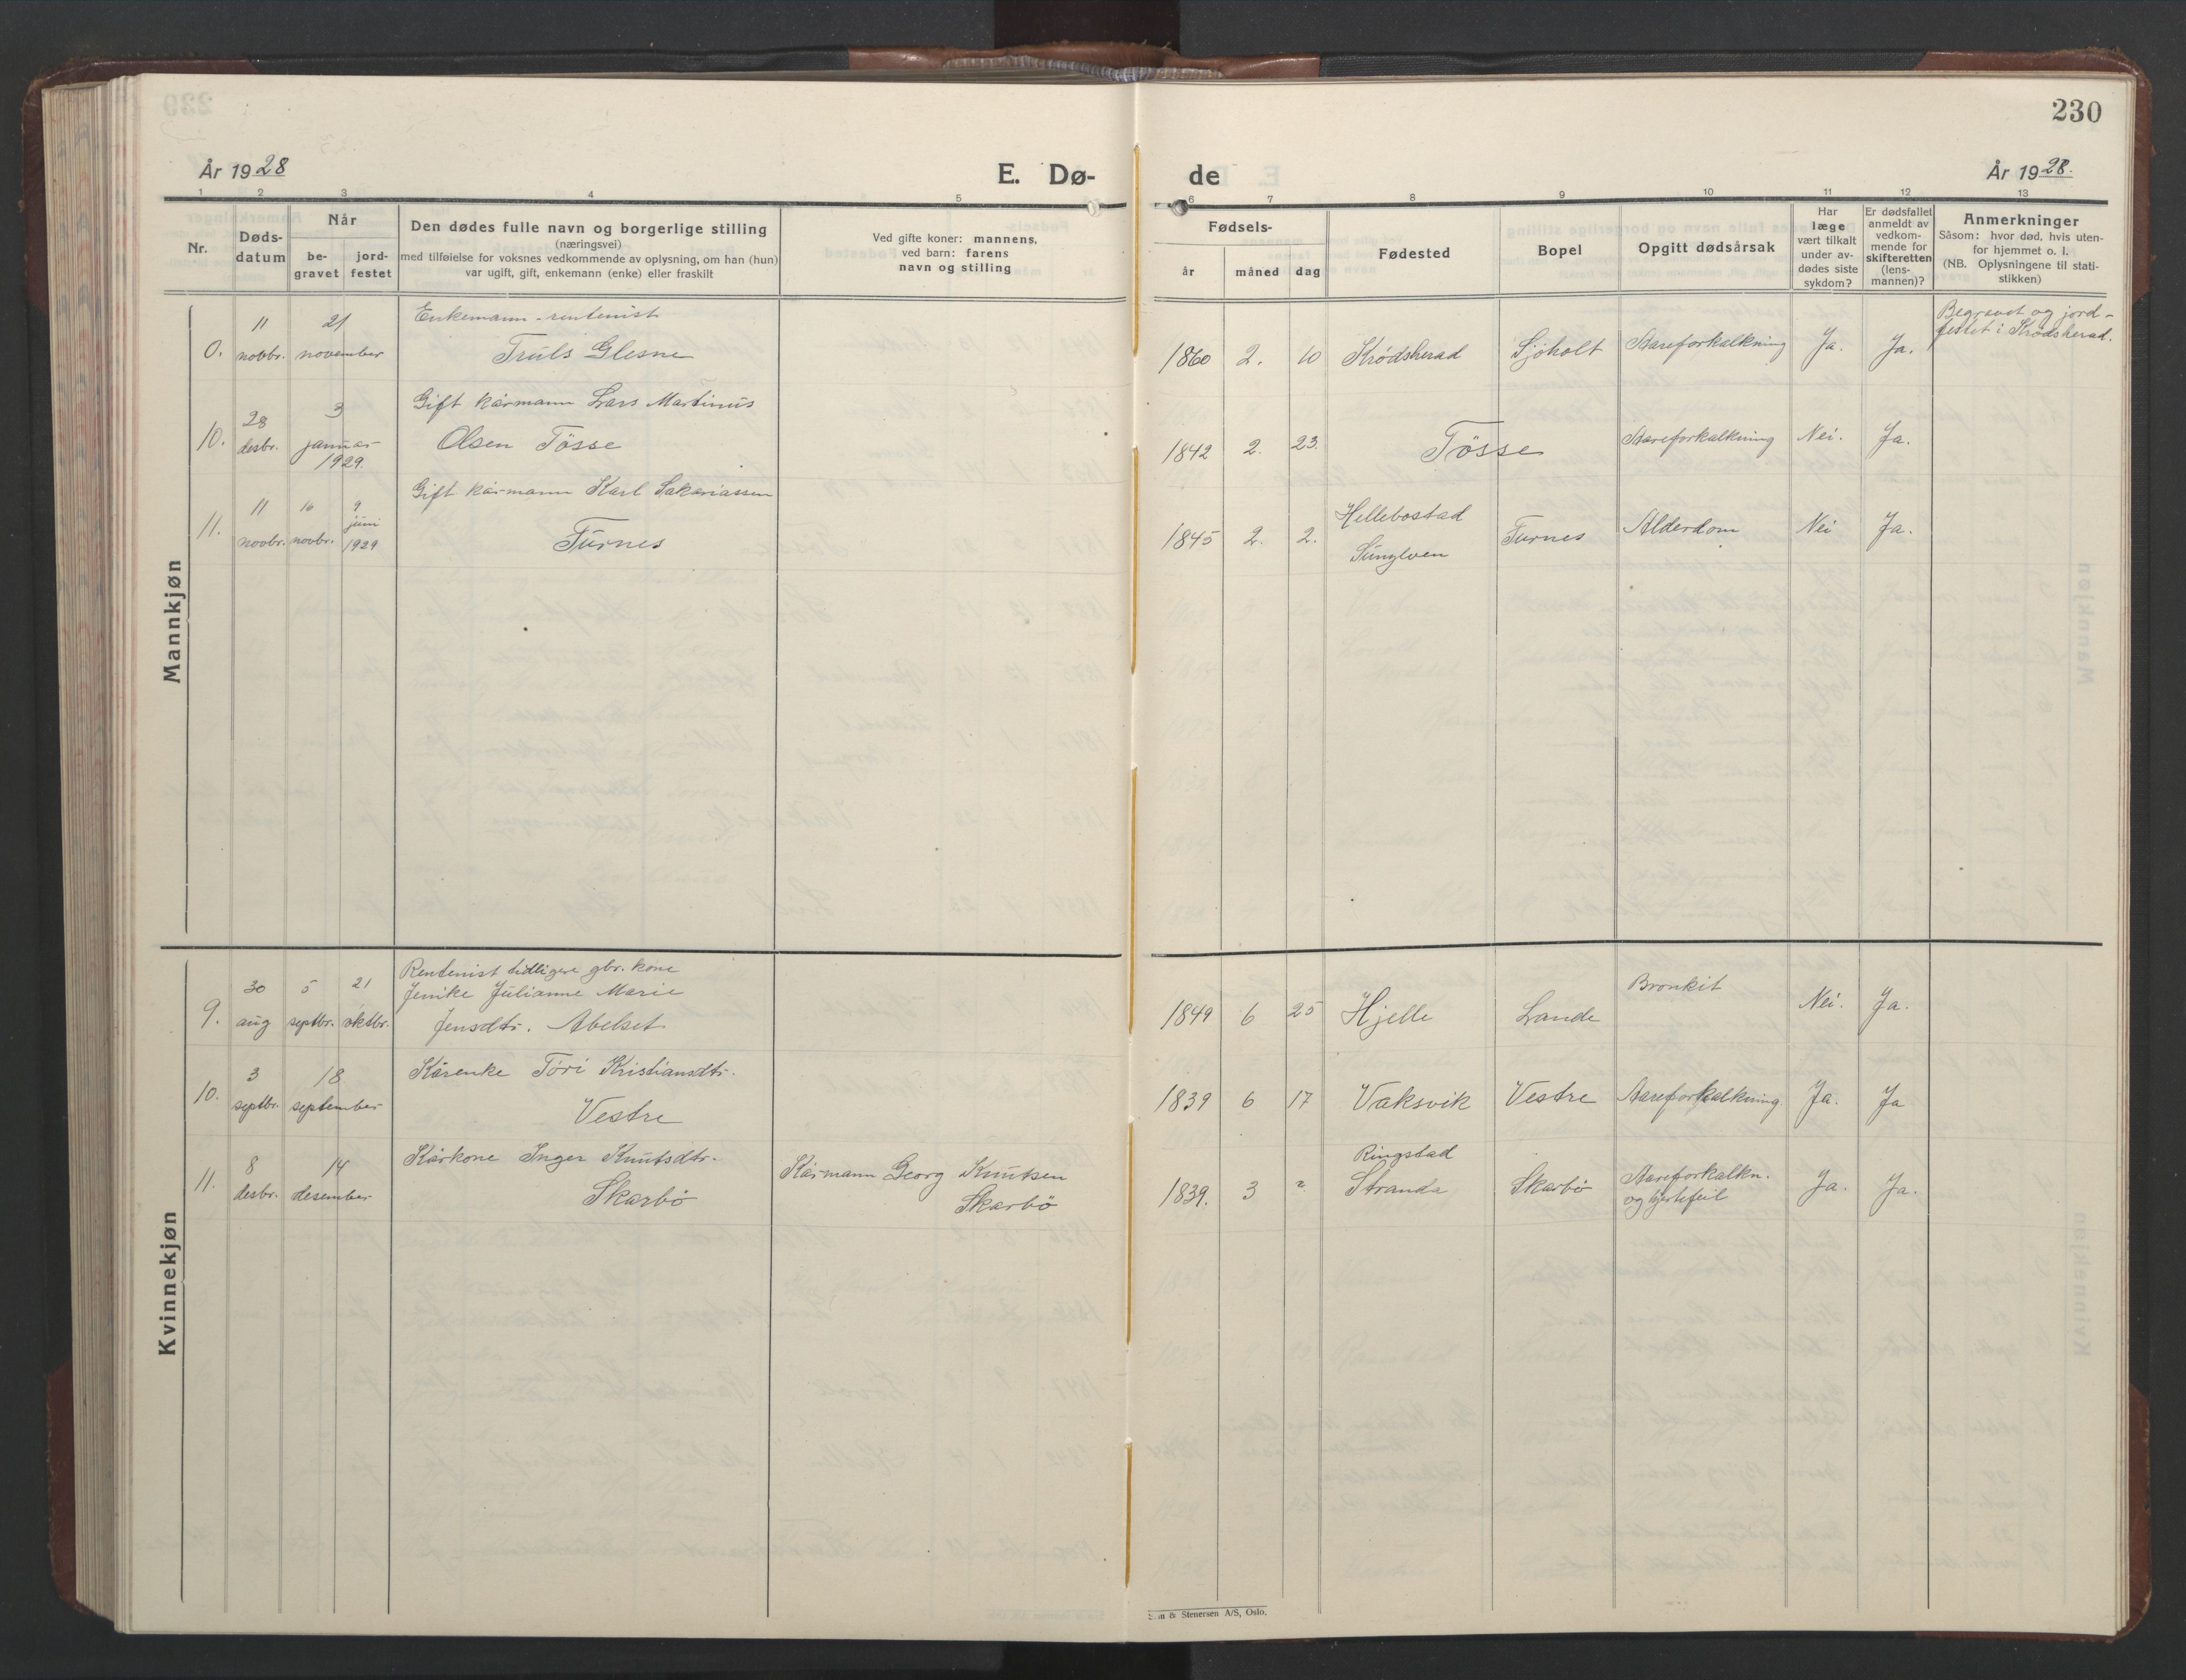 230
År 1928
E. Dø-
de
År 1928.
1 2 3 4 5 6 7 8 9 10 11 12 13
Nr.
Døds-
datum
Når
be-
gravet
jord-
festet
Den dødes fulle navn og borgerlige stilling
(næringsvei)
med tilføielse for voksnes vedkommende av oplysning, om han (hun)
var ugift, gift, enkemann (enke) eller fraskilt
Ved gifte koner: mannens,
ved barn: farens
navn og stilling
Fødsels-
år
måned
dag
Fødested
Bopel
Opgitt dødsårsak
Har
læge
vært tilkalt
under av-
dødes siste
sykdom?
Er dødsfallet
anmeldt av
vedkom-
mende for
skifteretten
(lens-
mannen)?
Anmerkninger
Såsom: hvor død, hvis uten-
for hjemmet o. l.
(NB. Oplysningene til stati-
stikken)
Mannkjøn
0.
11
novbr.
21
november
Enkemann - rentenist
Truls Glesne
1860 2. 10 Krødsherad Sjøholt Aareforkalkning Ja. Ja.
Begravet og jord-
festet i Krødsherad.
10.
28
desbr.
3
januar
1929.
Gift kårmann Lars Martinus
Olsen Tösse
1842 2. 23. Tösse Aareforkalkning Nei. Ja.
11.
11
novbr.
16
novbr.
9
juni
1929
Gift kårmann Karl Sakariassen
Furnes
1845 2. 2.
Hellebostad
Sunylven
Furnes Alderdom Nei Ja.
Kvinnekjøn
9.
30
aug
5
septbr.
21
oktbr.
Rentenist tidligere gbr. kone
Jenike Julianne Marie
Jensdtr. Abelset
1849 6 25 Hjelle Lande Bronkit Nei. Ja.
10.
3
septbr.
18
september
Karenke Tori Kristiansdtr.
Vestre
1839 6 17 Vaksvik Vestre Aareforkalkning. Ja. Ja
11.
8
desbr.
14
desember
Kårkone Inger Knutsdtr.
Skarbø
Kårmann Georg Knutsen
Skarbø
1839. 3 2
Ringstad
Stranda
Skarbø
Aareforkalkn.
og hjertefeil
Ja. Ja.
& Stenersen A/S, Oslo.